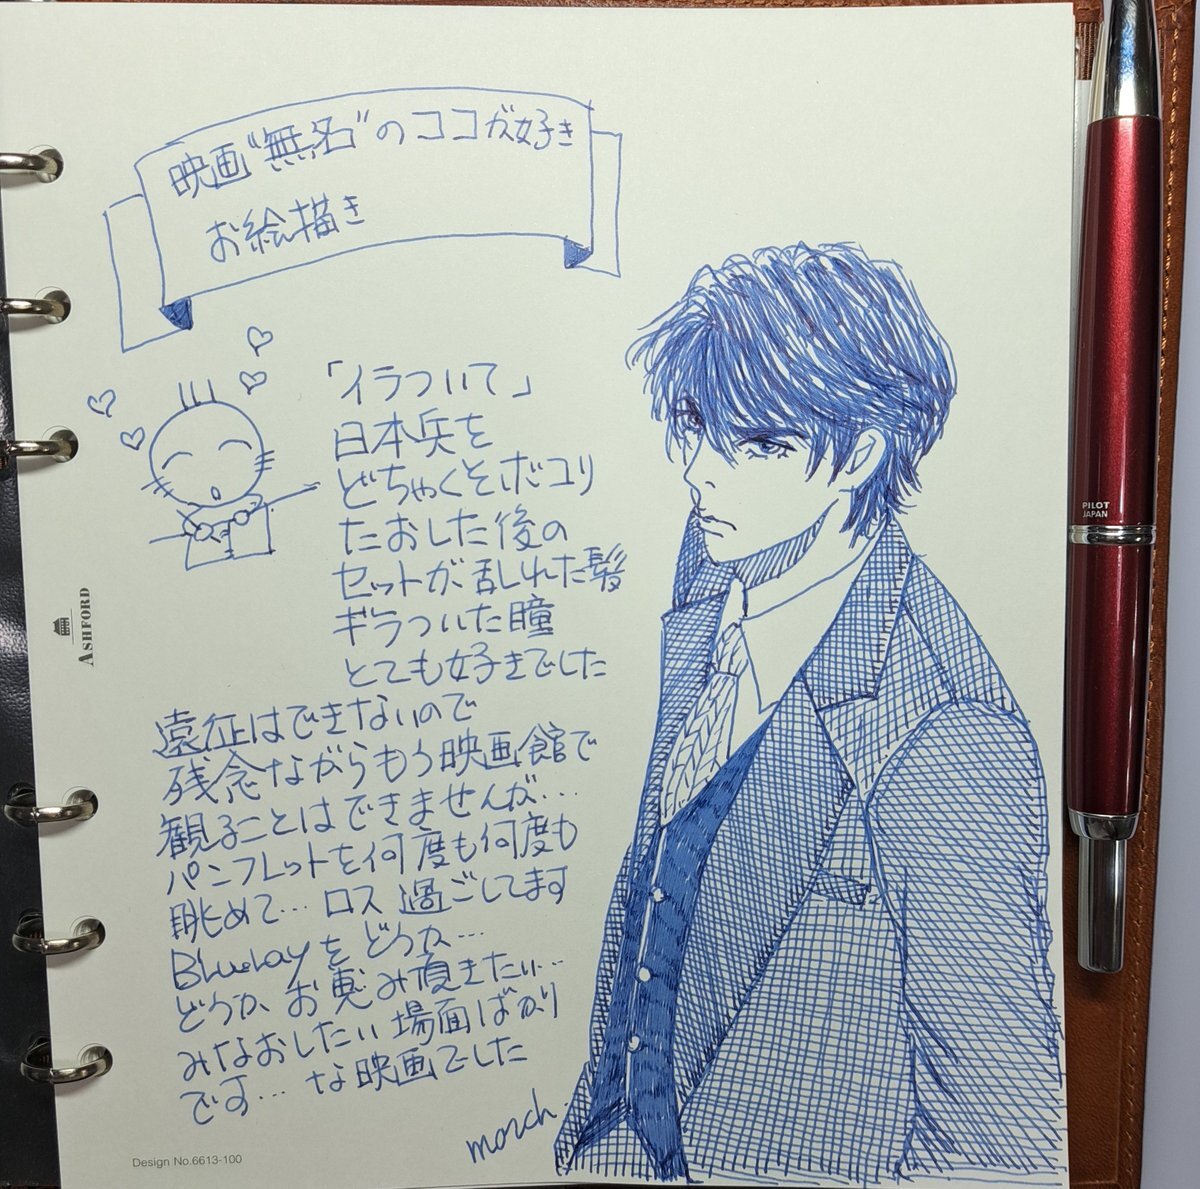 映画"無名"のココが好き
お絵描き
「イラついて」
日本兵を
どちゃくそボコリ
たおした後の
セットが乱れた髪
ギラついた瞳
とても好きでした
遠征はできないので
残念ながらもう映画館で
観ることはできませんが…
パンフレットを何度も何度も
眺めて…ロス過ごしてます
Blu-rayをどうか…
どうかお恵み頂きたい…
みなおしたい場面ばかり
です…な映画でした
morch.
ASHFORD
Design No.6613-100
PILOT
JAPAN